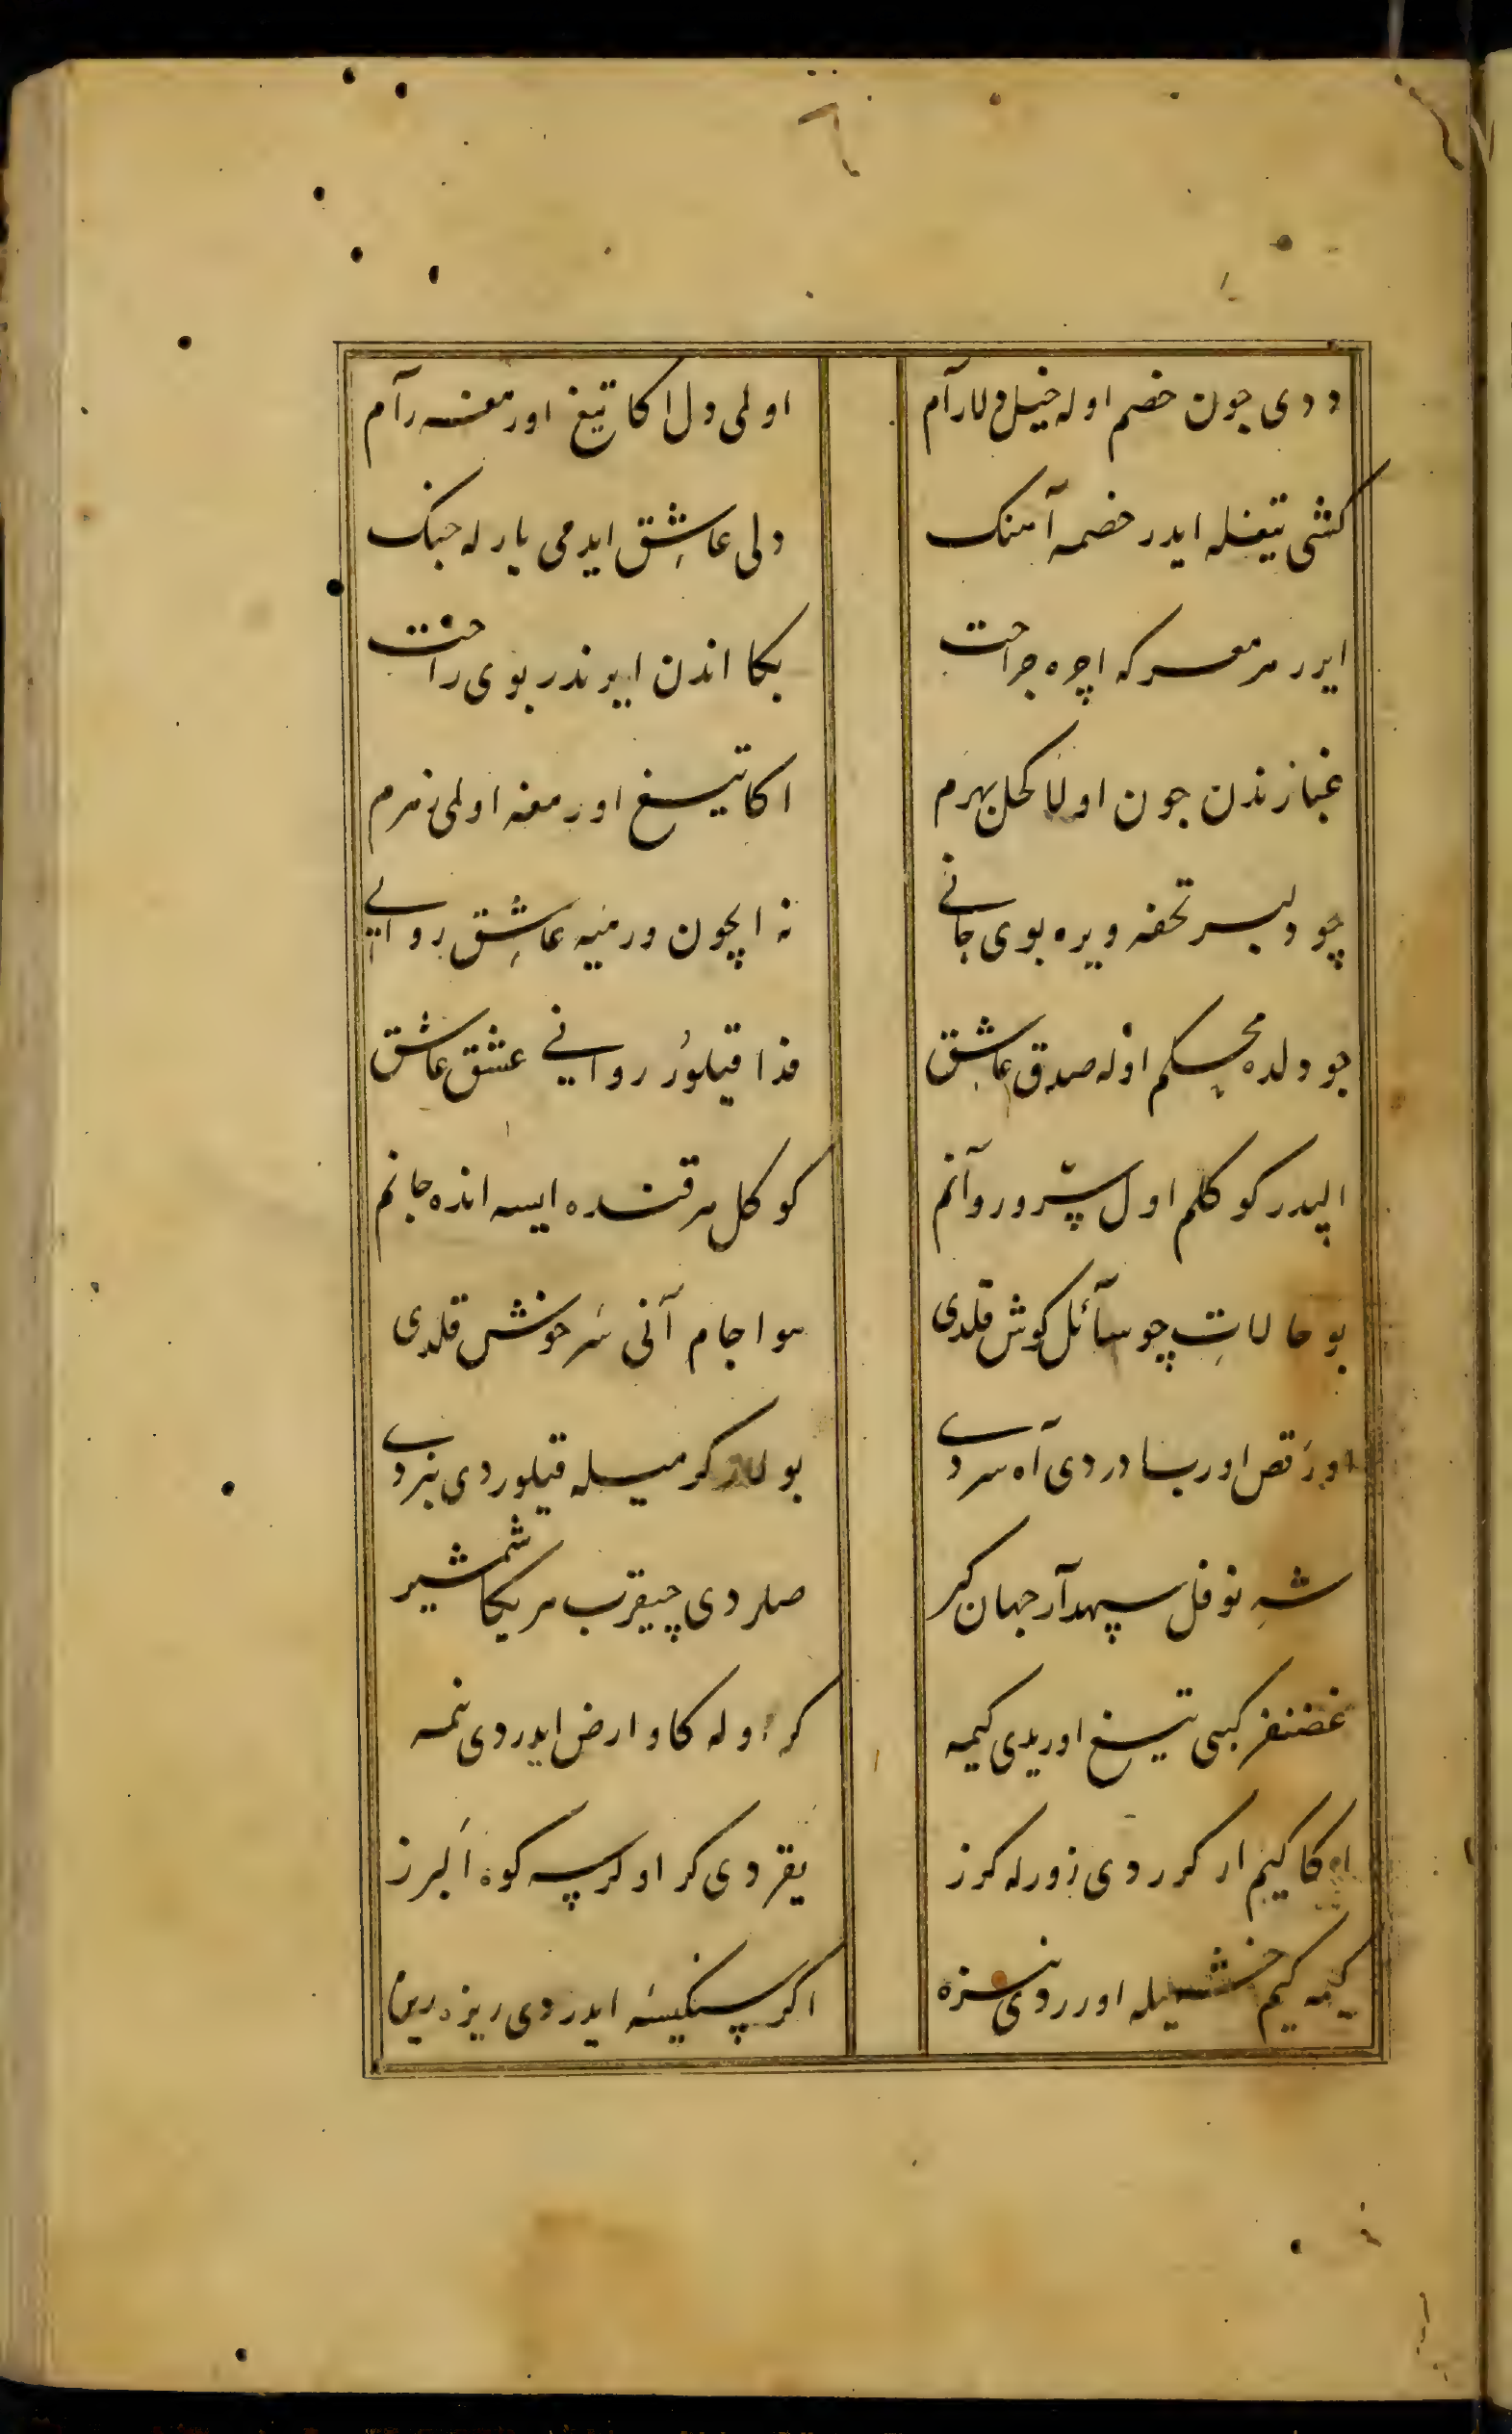 ددی چون خصم اوله خیل دلارآم اولی دل اکا تیغ اورمغه رآم
کشی تیغله ایدر خصمه آهنک ولی عاشِق ایدمی یار له جنک
ایرر هر معرکه اچره جراحت بکا اندن ایرندر بوی راحت
غبارندن چون اولا کحل بهرم اکا تیغ اورمغه اولمی زهرم
چو دلبر تحفه ویره بوی جانی نه ایچون ورمیه عاشِق روانی
چو دلده محکم اوله صدق عاشق فدا قیلور روانی عشق عاشق
الپدر کوکلم اول سرو روانم کوکل هر قنده ایسه انده جانم
بو حالاتِ چو سآئل کوش قلدی هوا جام آنی سَرخوش قلدی
اورَقص اورسا دردی آه سردی بولار کرمیله قیلوردی نبردی
شهِ نوفل سپهدآر جهان کیر صلردی چیقرب هر یکا شمشیر
غضنفر کبی تیغ اوریدی کیمه که اوله کاو ارض ایدردی نیمه
اکا کیم ار کوردی زورله کرز یقردی کر اولرسه کوه اَلبرز
کیمه کیم خشمیله اورردی نیزه اکر سنکیسَه ایدردی ریزه ریزه